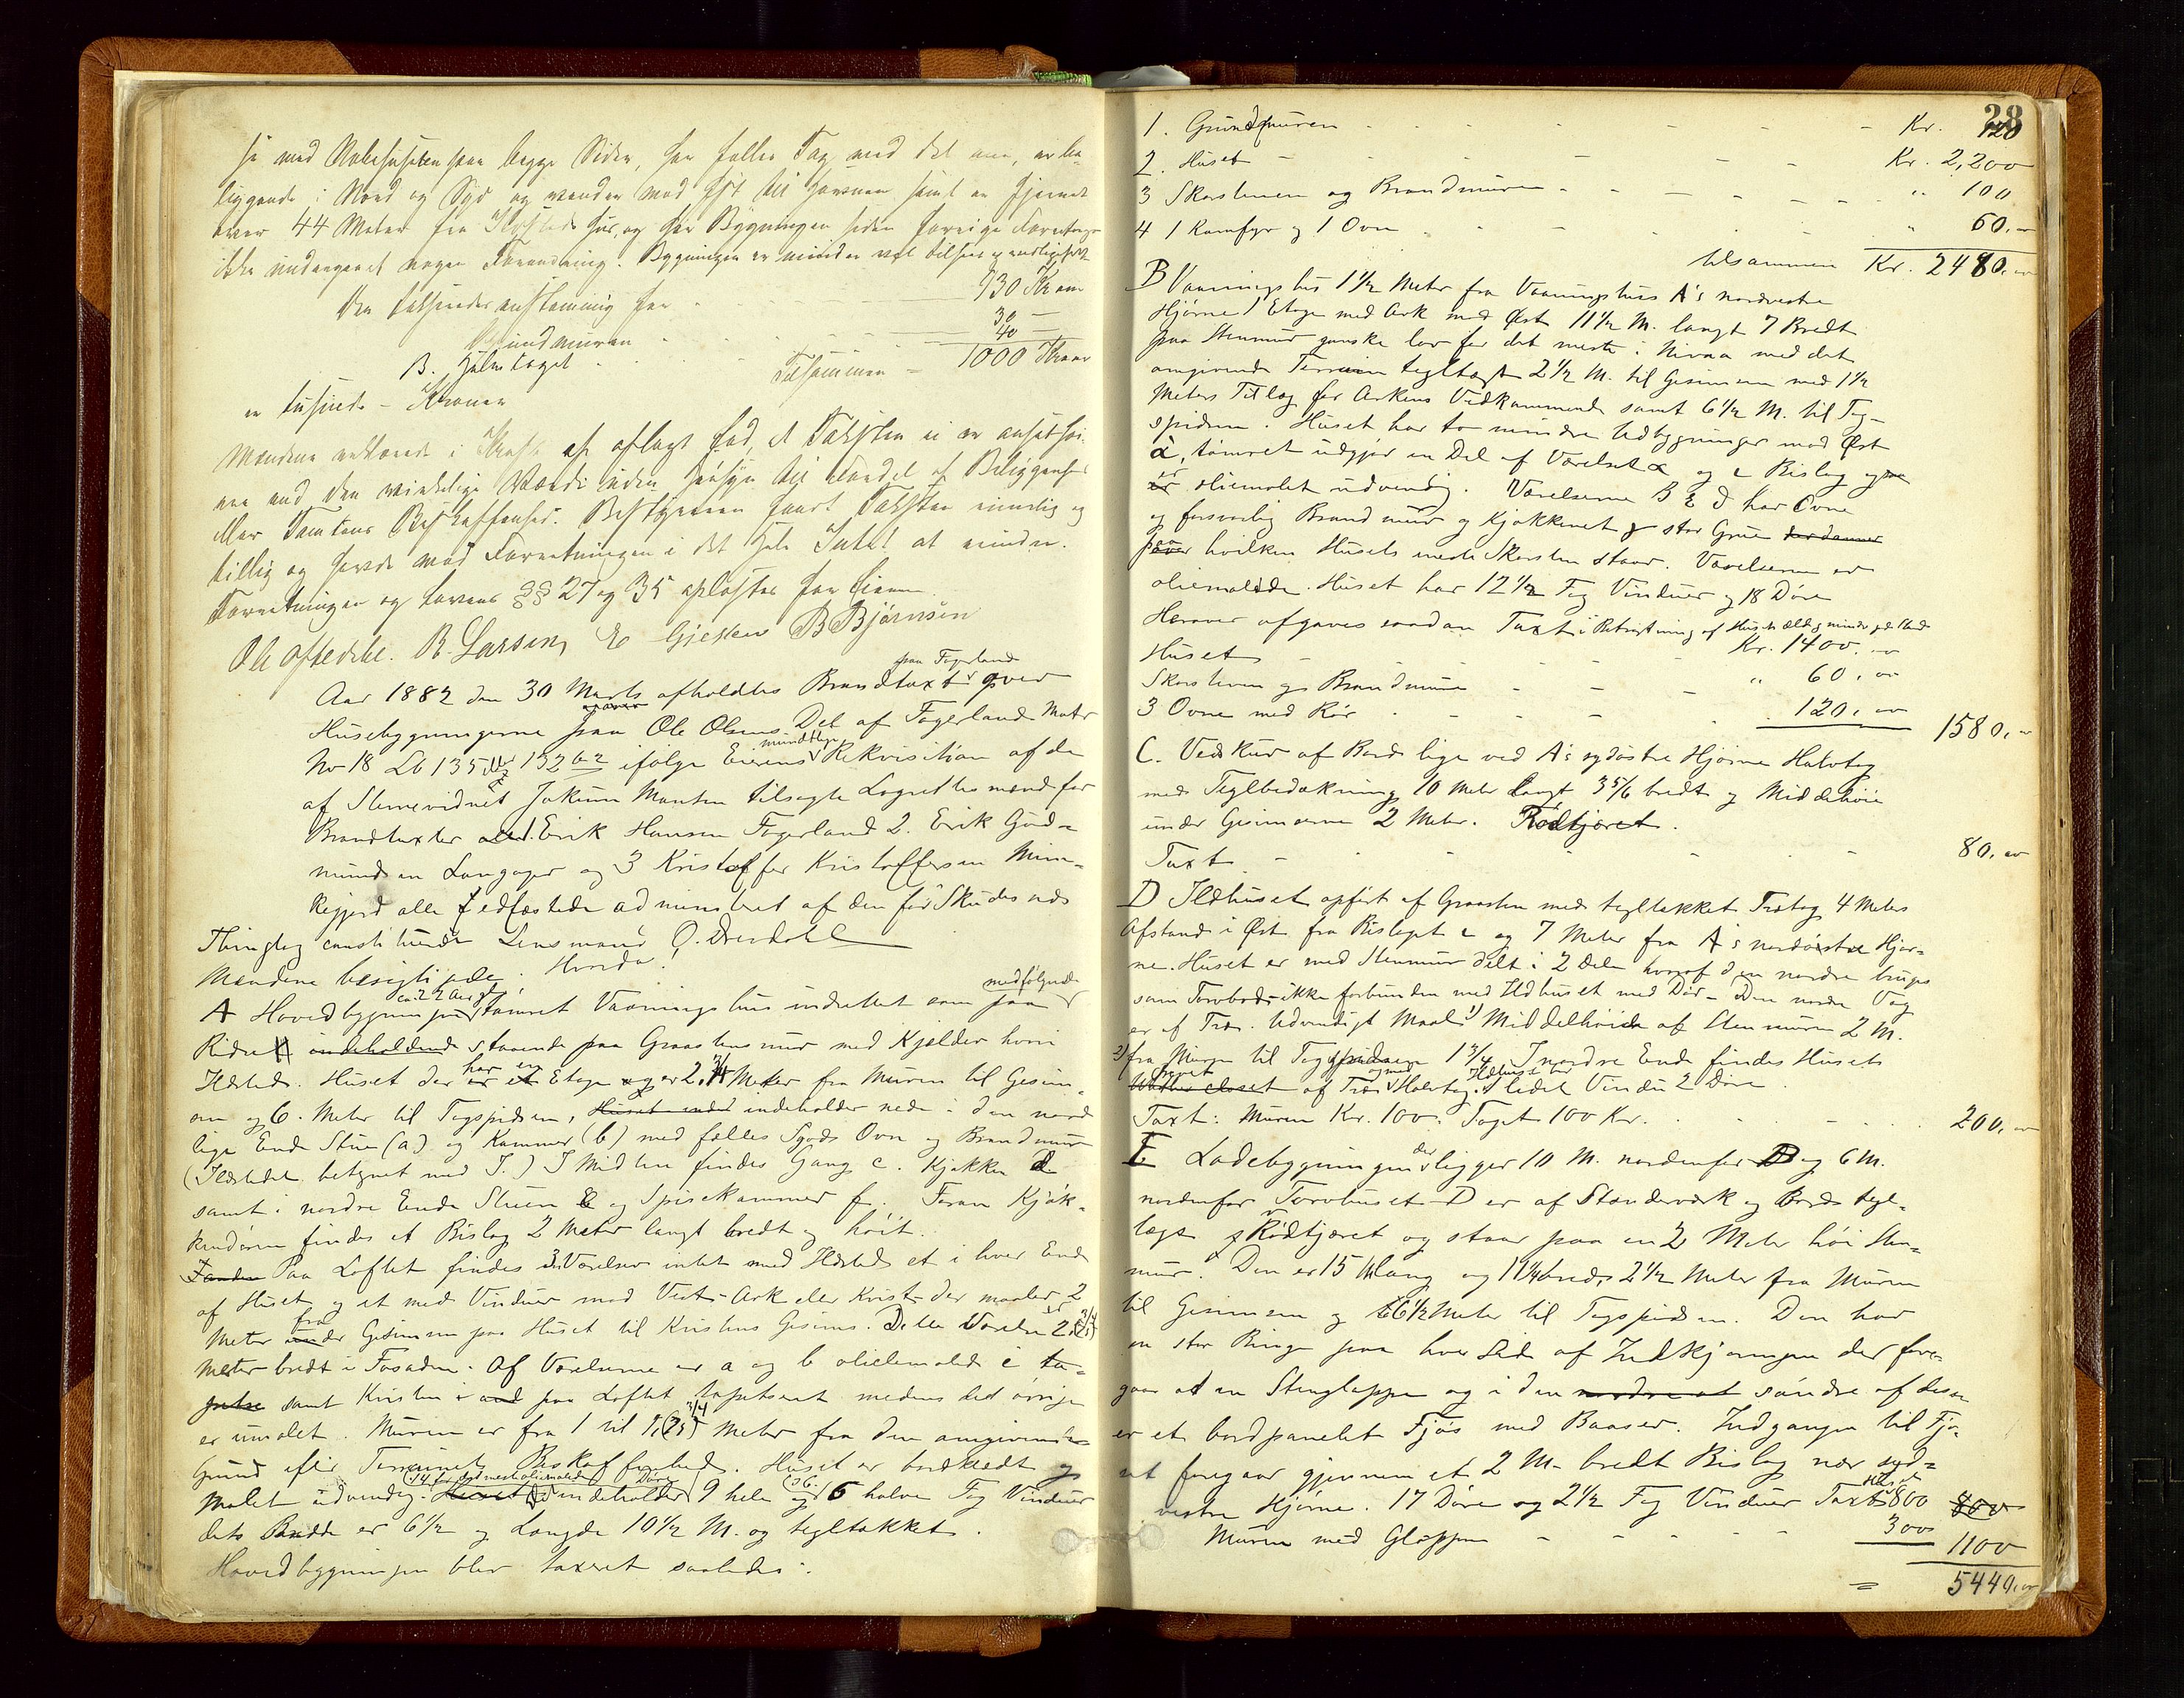 si med Nabohusene paa begge Sider, har fælles Tag med det ene, er be-
liggende i Nord og Syd og vender mod Øst til Havnen samt er fjernet
over 44 Meter fra Ildsteds Hus, og har Bygningen siden forrige Forretning
ikke undergaaet nogen Forandring. Bygningen er mindre vel tilseet og vedligeholdt
Den takseredes saaledes for 930 Kroner
Grundmuren 30 —
B. Halvtaget 40 —
Tilsammen — 1000 Kroner
en tusinde — Kroner
Mændene erklærede i Kraft af aflagt Ed, at Taksten ei er ansat høi-
ere end den virkelige Værdi uden Hensyn til Fordel af Beliggenhed
eller Tomtens Beskaffenhed. Bestyreren fandt Taksten rimelig og
billig og havde mod Forretningen i det Hele Intet at erindre.
Forretningen og Lovens §§ 27 og 35 oplæstes for Eieren
Ole Aftedahl. R. Larsen, E Gjesken B Bjørnsen
Aar 1882 den 30 Marts afholdtes Brandtaxt paa Fagerland over
Husebygningerne paa Ole Olsens Del af Fagerland Matr
No 18 Lb 135 152 b2 ifølge Eierens mundtlige Rekvisition af de
af Stevnevidnet Jokum Monsen tilsagte Lagrettesmænd for
Brandtaxter 1. Erik Hansen Fagerland 2. Erik Gud-
mundsen Langager og 3 Kristoffer Kristoffersen Mun-
kejord alle Edfæstede administret af den for Skudesnæs
Thinglag constituerede Lensmand O. Dversdahl
Mændene besigtigede. Hvorda:
A Hovedbygningen ca. 22 Aar gl. tømret Vaaningshus indrettet som paa medfølgende
Rids indeholdende staaende paa Graastensmur med Kjælder hvori
Ildsted. Huset der har en Etage og er 2 3/4 Meter fra Muren til Gesim-
sen og 6. Meter til Tagspidsen, indeholder nede i den nord
lige Ende Stue (a) og Kammer (b) med fælles Ovn og Brandmur
(Ildstedet betegnet med I.) I Midten findes Gang c. Kjøkken d
samt i nordre Ende Stuen E og Spisekammer f. Foran Kjøk-
kendøren findes et Bislag 2 Meter langt bredt og høit.
Paa Loftet findes 3 Værelser intet med Ildsted et i hver Ende
af Huset og et med Vinduer mod Vest-Ark eller Kvist der maaler 2
Meter fra Gesimsen paa Huset til Kvistens Gesims. Dette Værelse er 2 3/4
Meter bredt i Fasaden. Af Værelserne er a og b oliemalede c ta-
petse samt Kvisten i paa Loftet tapetseret medens det øvrige
er umalet. Muren er fra 1 til 1 3/4 Meter fra den omgivende
Grund efter Terrainets Beskaffenhed. Huset er bordklædt og
malet udvendig. (14 for det meste oliemalede Døre) indeholder 9 hele og 6 halve Fag Vinduer
dets Bredde er 6 1/2 og Længde 10 1/2 M. og tegltækket.
Hovedbygningen blev taxeret saaledes:
28
1. Grundmuren - Kr. 120
2. Huset - Kr. 2,200
3 Skorstenen og Brandmuren - " 100
4 1 Komfyr og 1 Ovn " 60.00
tilsammen Kr. 2480.00
B Vaaningshus 1 1/2 Meter fra Vaaningshus A's nordvestre
Hjørne 1 Etage med Ark mod Øst 11 1/2 M. langt 7 Bredt
paa Stenmur ganske lav for det meste i Nivaa med det
omgivende Terrain tegltægt 2 1/2 M. til Gesimsen med 1 1/2
Meters Tillæg for Arkens Vedkommende samt 6 1/2 M. til Tag-
spidsen. Huset har to mindre Udbygninger mod Øst
a, tømret udgjør en Del af Værelset a og c Bislag og
er oliemalet udvendig. Værelserne B & d har Ovne
og forsvarlig Brandmur og Kjøkkenet stor Grue der danner
paa hvilken Husets meste Skorsten staar. Værelserne er
oliemalede. Huset har 12 1/2 Fag Vinduer og 18 Døre
Herover afgaves saadan Taxt i Betragtning af Husets Ælde og mindre gode Stand
Huset - Kr. 1400.00
Skorstenen og Brandmuren - " 60.00
3 Ovne med Rør - 120.00 1580.00
C. Vedskur af Bord lige ved A's sydøstre Hjørne Halvtag
med Teglbedækning 10 Meter langt 3 5/6 bredt og Middelhøie
under Gesimserne 2 Meter. Rødtjæret.
Taxt - 80.00
D Ildhuset opført af Graasten med tegltækket Trætag 4 Meters
Afstand i Øst fra Bislaget c og 7 Meter fra A's nordøstre Hjør-
ne. Huset er med Stenmur delt i 2 Dele hvoraf den nordre bruges
som Torvbod - ikke forbunden med Ildhuset med Dør - Den nordre Væg
er af Træ. Udvendigt Maal: 1) Middelhøide af Stenmuren 2 M.
2) fra Muren til Tagspidsen 1 3/4 I nordre Ende findes Husets
af Træ og med Halvtag. Ildhuset har 1 lidet Vindu 2 Døre.
Taxt: Muren Kr. 100. Taget 100 Kr. 200.00
E Ladebygningen der ligger 10 M. nordenfor B og 6 M.
nordenfor Torvhuset D er af Stænderværk og Bord tegl-
lagt og Rødtjæret og staar paa en 2 Meter høi Sten-
mur. Den er 15 M lang og 11 1/4 bred, 2 1/2 Meter fra Muren
til Gesimsen og 6 1/2 Meter til Tagspidsen. Den har
en stor Binge paa hver Side af Indkjørsgen der fore-
gaar ad en Stengloppe og i den nordre at søndre af disse
er et bordpanelet Fjøs med Baaser. Indgangen til Fjø-
set foregaar gjennem et 2 M. bredt Bislag nær syd-
vestre Hjørne. 17 Døre og 2 1/2 Fag Vinduer Taxt Huset 800 800
Muren med Gloppen - 300 1100
= 5440.00